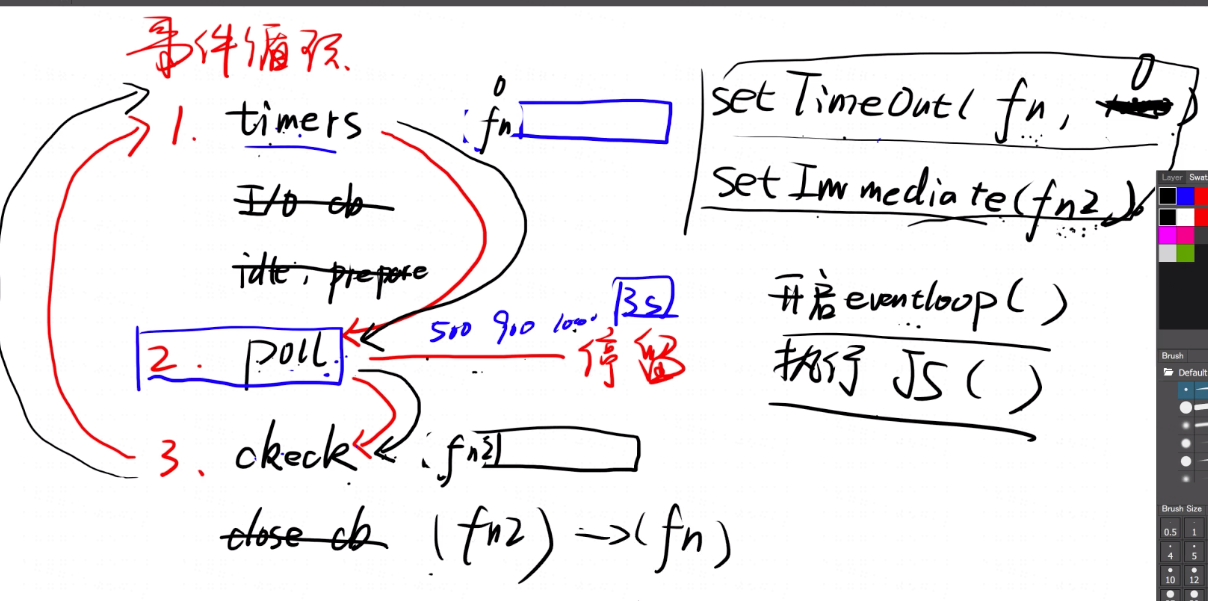 事件循环
1. timers
0
fn
I/O cb
idle, prepare
2. poll
500 900 1000 3s
停留
3. ckeck
fn2
close cb
(fn2) → (fn)
setTimeOut( fn, 0 )
setImmediate(fn2)
开启eventloop()
执行 JS ( )
Layer Swat
Brush
Default
Brush Size
0.5 1
4 5
10 12